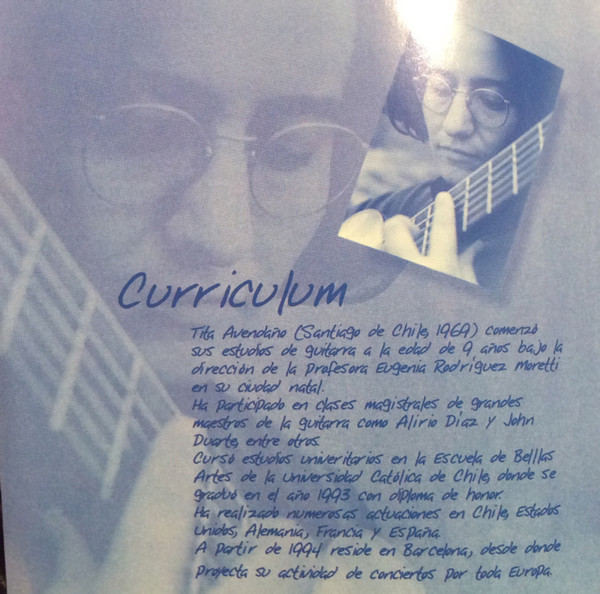 Curriculum
Tita Avendaño (Santiago de Chile, 1969) comenzó
sus estudios de guitarra a la edad de 9 años bajo la
dirección de la Profesora Eugenia Rodríguez Moretti
en su ciudad natal.
Ha participado en clases magistrales de grandes
maestros de la guitarra como Alirio Díaz y John
Duarte, entre otros.
Cursó estudios univeritarios en la Escuela de Bellas
Artes de la Universidad Católica de Chile, donde se
graduó en el año 1993 con diploma de honor.
Ha realizado numerosas actuaciones en Chile, Estados
Unidos, Alemania, Francia y España.
A partir de 1994 reside en Barcelona, desde donde
proyecta su actividad de conciertos por toda Europa.